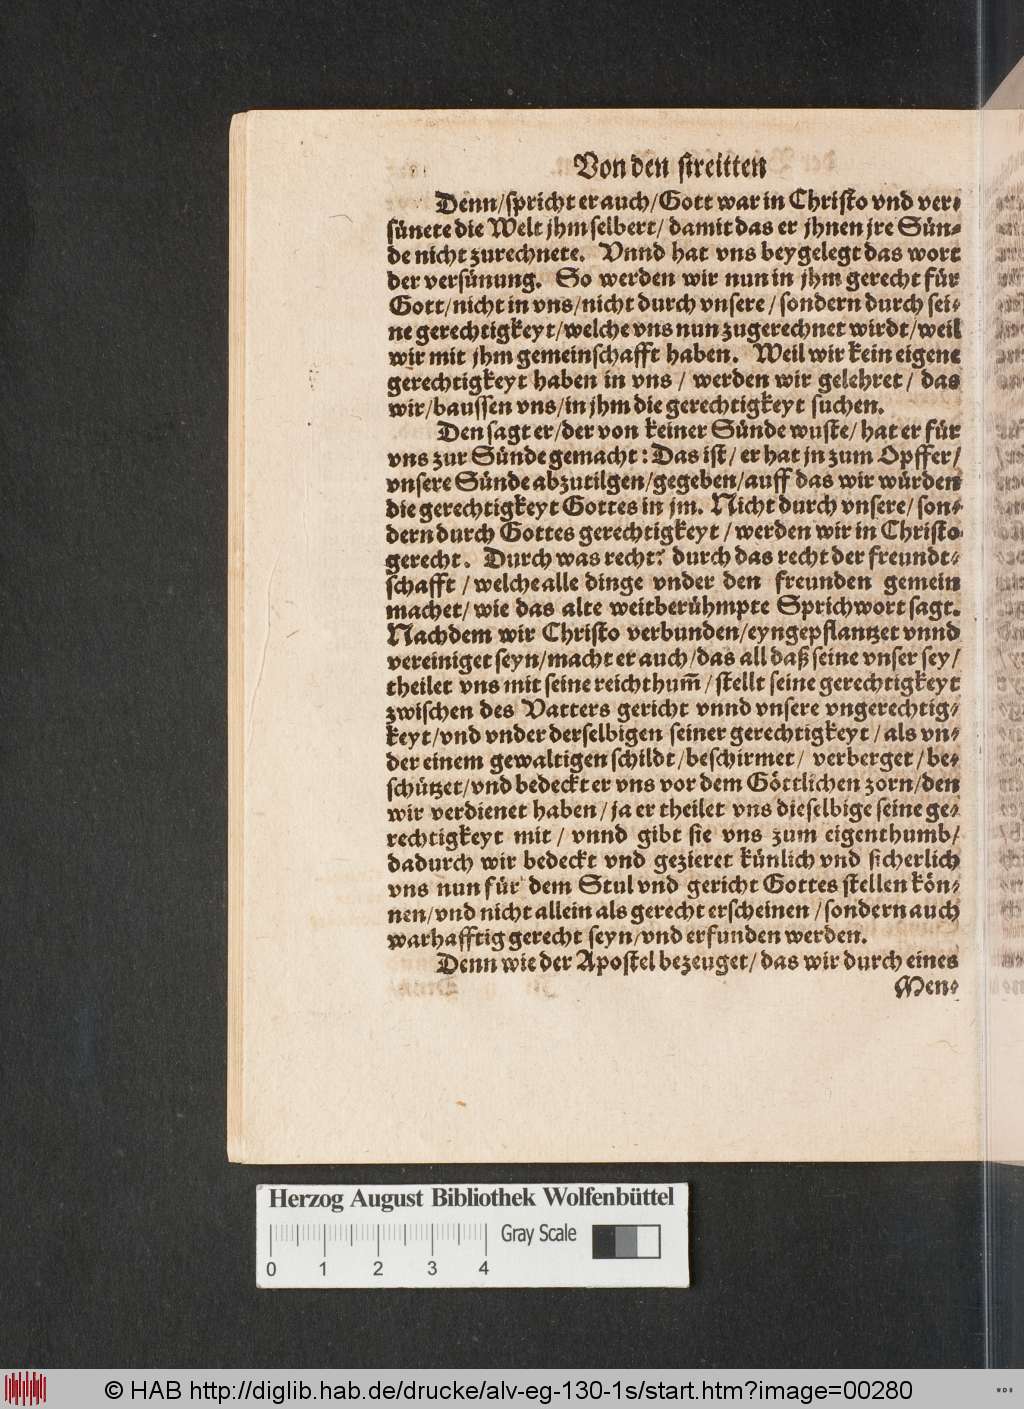 Von den streitten
Denn/spricht er auch/Gott war in Christo vnd ver-
sünete die Welt jhm selbert/ damit das er jhnen jre Sün-
de nicht zurechnete. Vnnd hat vns beygelegt das wort
der versünung. So werden wir nun in jhm gerecht für
Gott/nicht in vns/nicht durch vnsere/sondern durch sei-
ne gerechtigkeyt/welche vns nun zugerechnet wirdt/weil
wir mit jhm gemeinschafft haben. Weil wir kein eigene
gerechtigkeyt haben in vns / werden wir gelehret/ das
wir/baussen vns/in jhm die gerechtigkeyt suchen.
Den sagt er/der von keiner Sünde wuste/ hat er für
vns zur Sünde gemacht: Das ist/ er hat jn zum Opffer/
vnsere Sünde abzutilgen/gegeben/auff das wir würden
die gerechtigkeyt Gottes in jm. Nicht durch vnsere/ son-
dern durch Gottes gerechtigkeyt / werden wir in Christo
gerecht. Durch was recht? durch das recht der freundt-
schafft / welche alle dinge vnder den freunden gemein
machet/ wie das alte weitberühmpte Sprichwort sagt.
Nachdem wir Christo verbunden/eyngepflantzet vnnd
vereiniget seyn/macht er auch/das all daß seine vnser sey/
theilet vns mit seine reichthum̃/ stellt seine gerechtigkeyt
zwischen des Vatters gericht vnnd vnsere vngerechtig-
keyt/vnd vnder derselbigen seiner gerechtigkeyt / als vn-
der einem gewaltigen schildt/beschirmet/ verberget/be-
schützet/vnd bedeckt er vns vor dem Göttlichen zorn/den
wir verdienet haben/ja er theilet vns dieselbige seine ge-
rechtigkeyt mit/ vnnd gibt sie vns zum eigenthumb/
dadurch wir bedeckt vnd gezieret künlich vnd sicherlich
vns nun für dem Stul vnd gericht Gottes stellen kön-
nen/vnd nicht allein als gerecht erscheinen /sondern auch
warhafftig gerecht seyn/vnd erfunden werden.
Denn wie der Apostel bezeuget/das wir durch eines
Men-
Herzog August Bibliothek Wolfenbüttel
Gray Scale
0 1 2 3 4
© HAB http://diglib.hab.de/drucke/alv-eg-130-1s/start.htm?image=00280